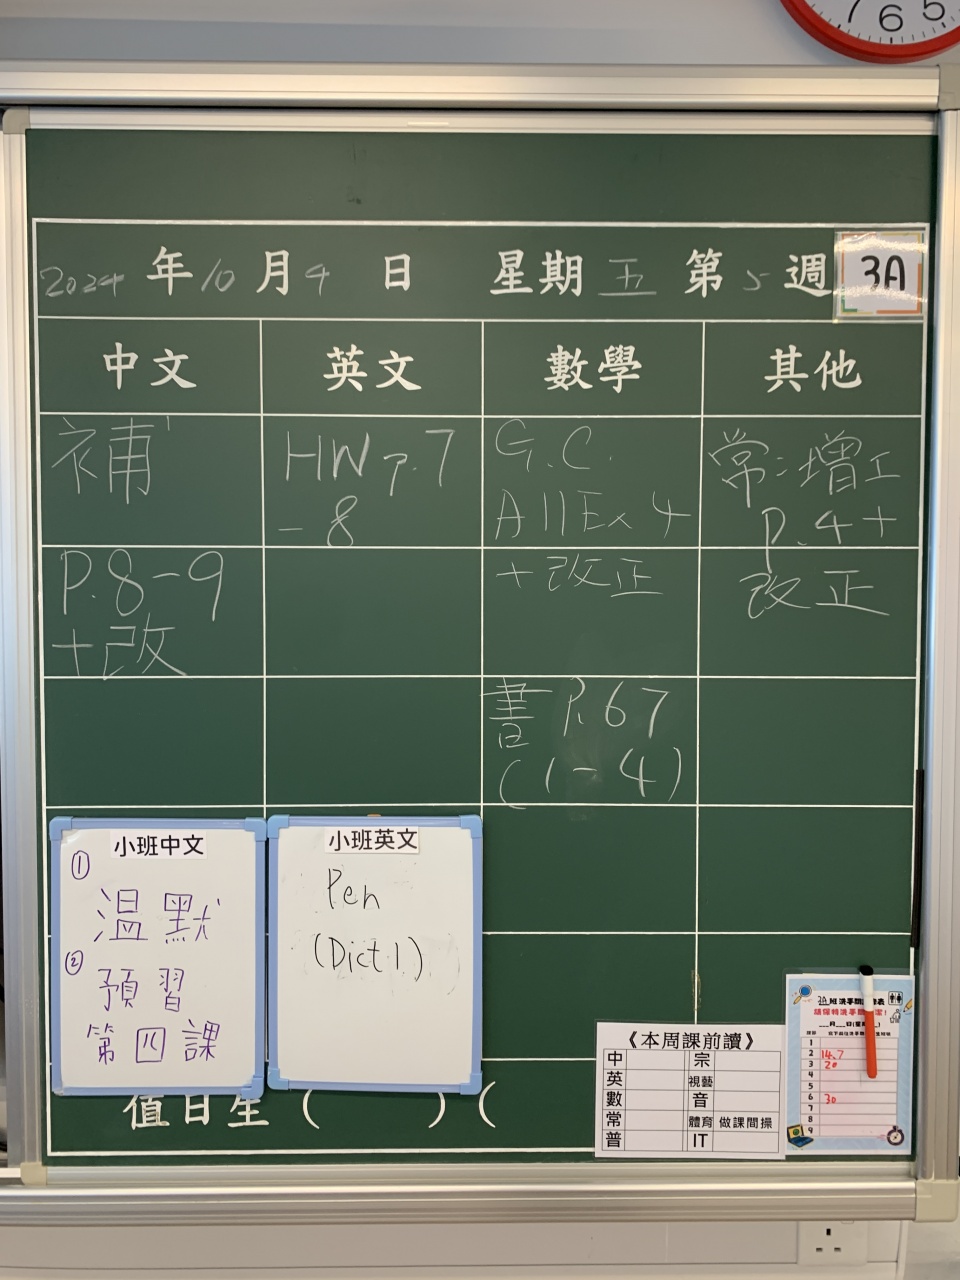 7 6 5
2024 年 10 月 4 日 星期 五 第 5 週 3A
中文 英文 數學 其他
補
P.8-9
+改
HW p.7
-8
G.C.
A11Ex4
+改正
書 P.67
(1-4)
常:增工
P.4+
改正
小班中文
① 溫默
② 預習
第四課
小班英文
Pen
(Dict 1)
值日生( )(
《本周課前讀》
中 宗
英 視藝
數 音
常 體育 做課間操
普 IT
3A班洗手間
請保持洗手間
月 日(星期
1
2 14.7
3 20
4
5
6 30
7
8
9